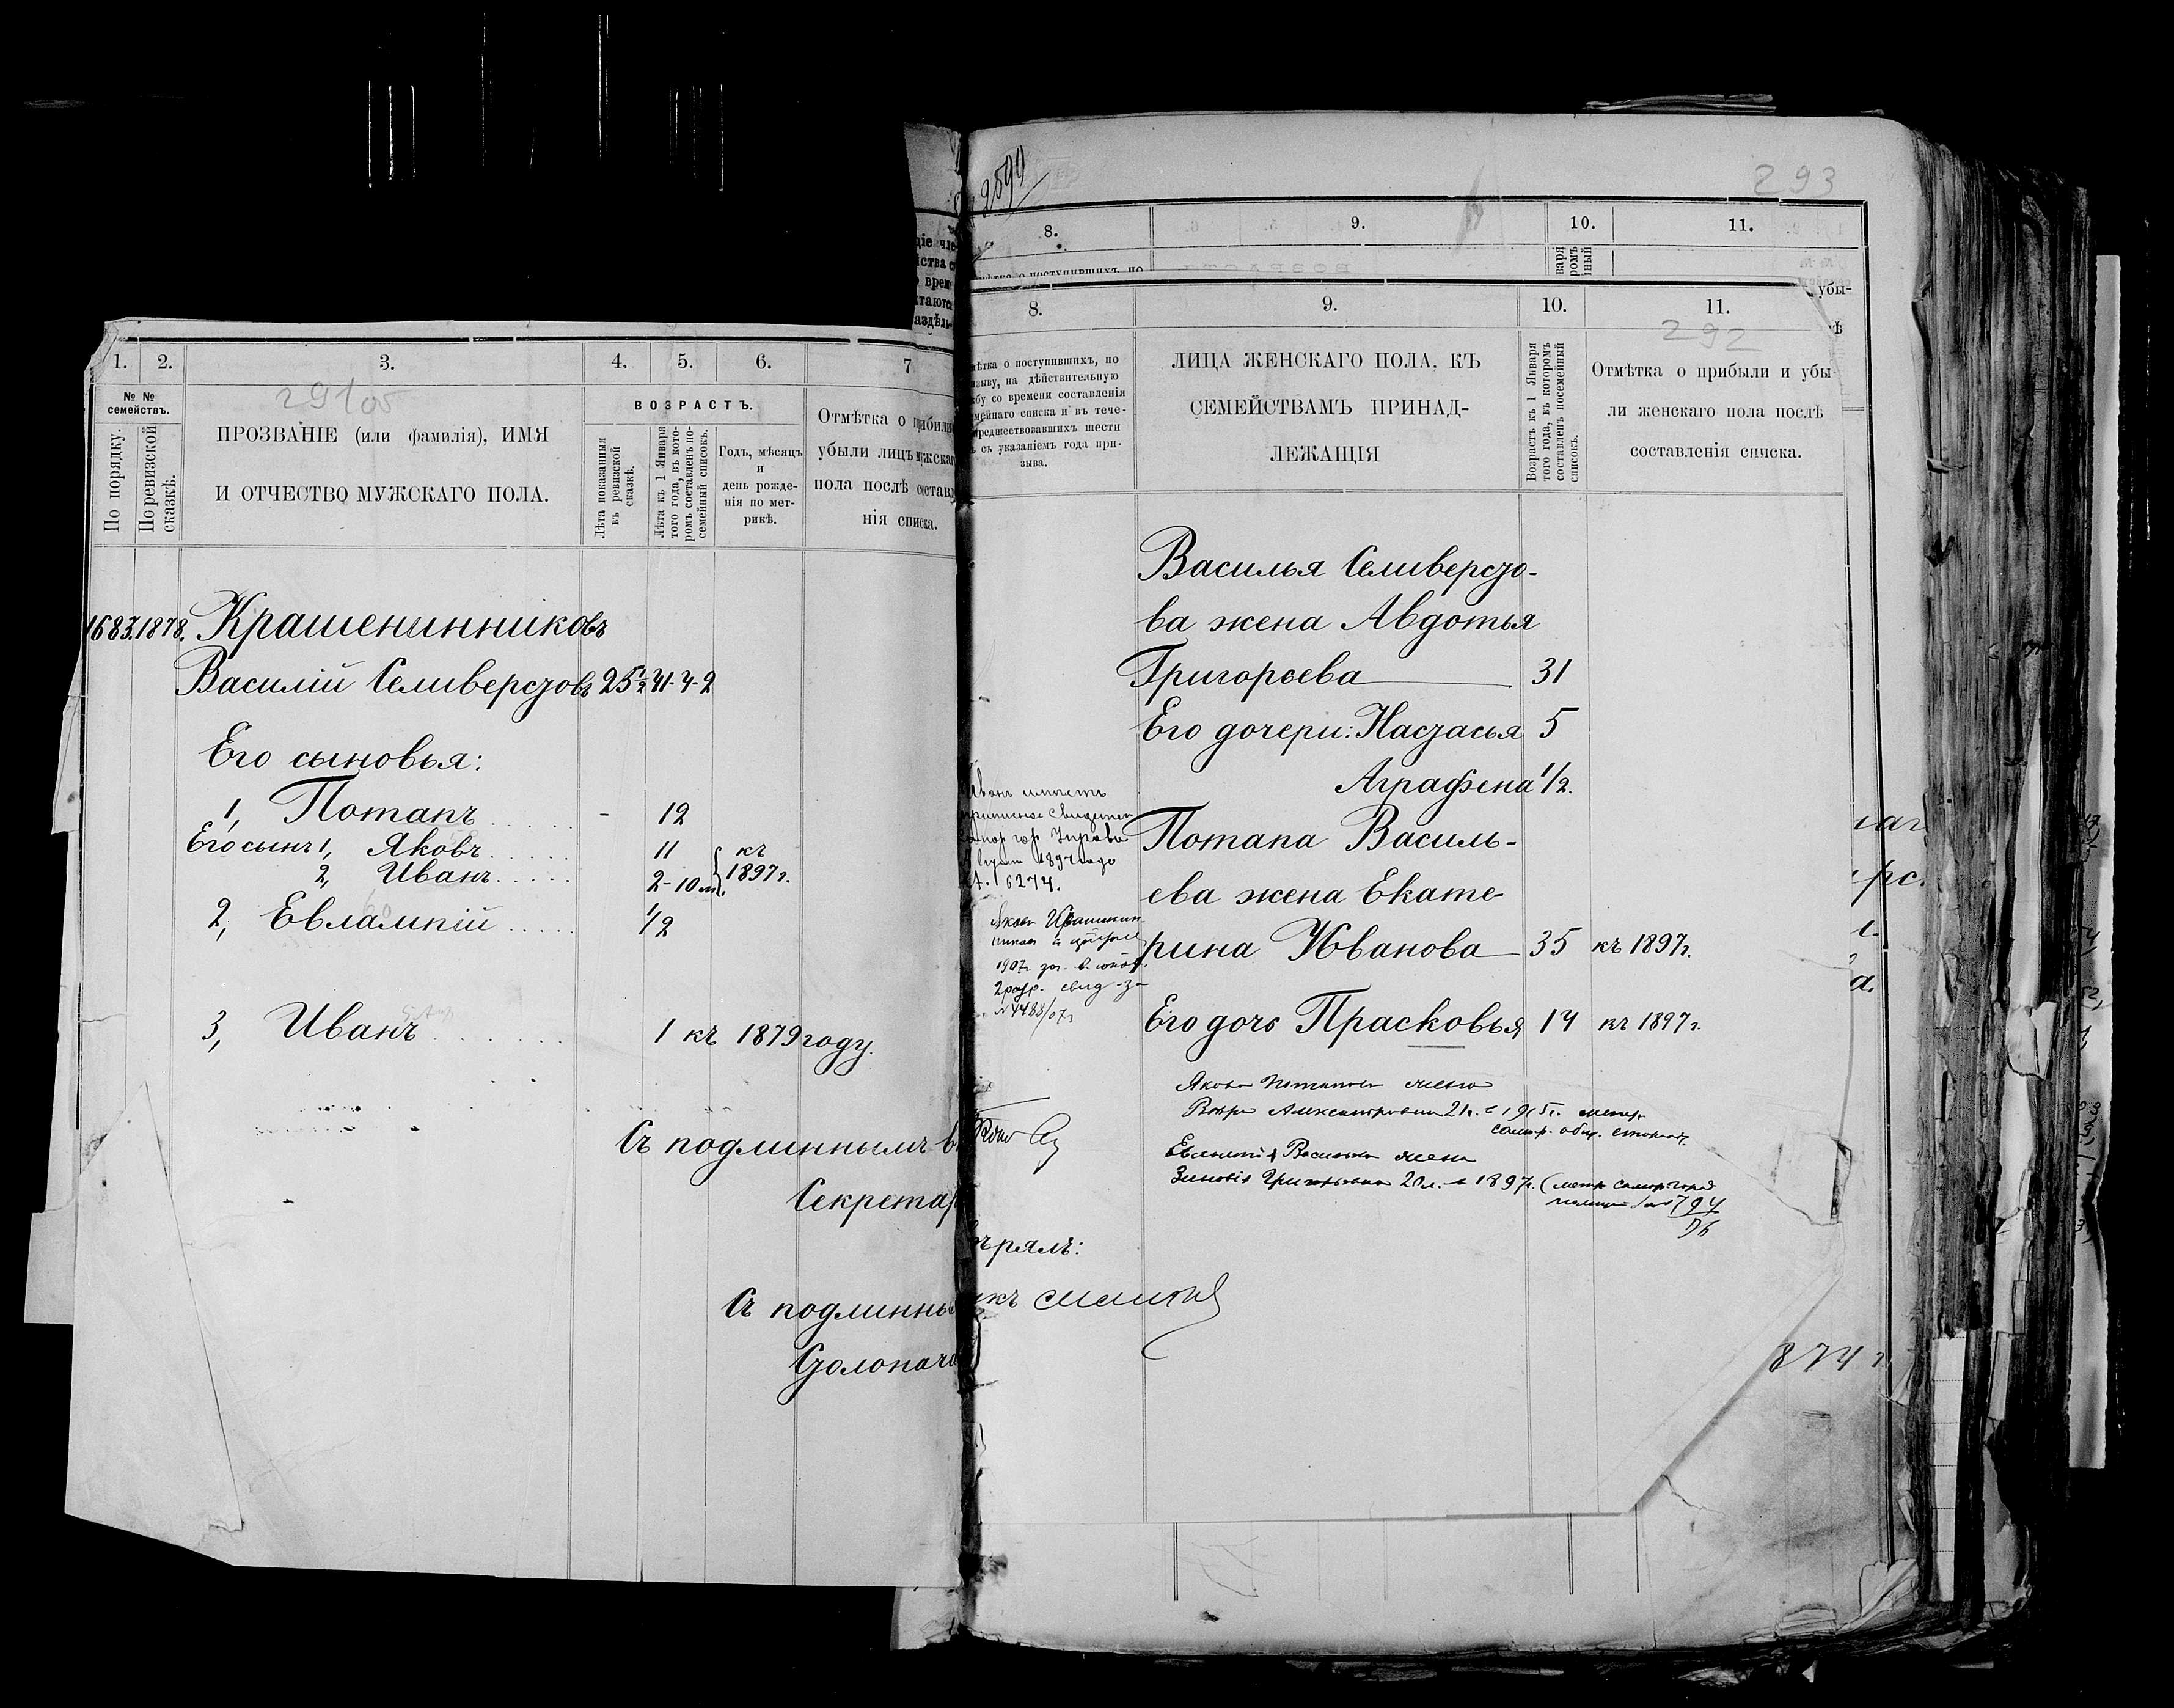 293
8. 9. 10. 11.
1. 2. 3. 4. 5. 6. 7
№ №
семействъ.
По порядку.
По ревизской сказкѣ.
291об
ПРОЗВАНІЕ (или фамилія), ИМЯ
И ОТЧЕСТВО МУЖСКАГО ПОЛА.
ВОЗРАСТЪ.
Лѣта показанныя въ ревизской сказкѣ.
Лѣта къ 1 Января того года, въ которомъ составленъ посемейный списокъ.
Годъ, мѣсяцъ
и
день рожде-
нія по мет-
рикѣ.
Отмѣтка о прибыли
убыли лицъ мужскаго
пола послѣ составле
нія списка.
1683. 1878. Крашенинниковъ
Василій Селиверстовъ 25½ 41-4-2
Его сыновья:
1, Потапъ - 12
Его сынъ 1, Яковъ 11 къ
2, Иванъ 2-10 м. 1897 г.
2, Евлампій ½
3, Иванъ 1 къ 1879 году.
Съ подлиннымъ в
Секретар
Съ подлинны
Столонача
8. 9. 10. 11.
292
мѣтка о поступившихъ, по
изыву, на дѣйствительную
жбу со времени составленія
мейнаго списка и въ тече-
предшествовавшихъ шести
ъ съ указаніемъ года при-
зыва.
ЛИЦА ЖЕНСКАГО ПОЛА, КЪ
СЕМЕЙСТВАМЪ ПРИНАД-
ЛЕЖАЩІЯ
Возрастъ къ 1 Января того года, въ которомъ составленъ посемейный списокъ.
Отмѣтка о прибыли и убы-
ли женскаго пола послѣ
составленія списка.
Василья Селиверсто-
ва жена Авдотья
Григорьева 31
Его дочери: Настасья 5
Аграфена ½.
Потапа Василь-
ева жена Екате-
рина Иванова 35 къ 1897 г.
Его дочь Прасковья 14 къ 1897 г.
6274.
1907 г.
№ 4488/07 г
Якова Потапова жена
21 л. 1915 г. метр.
Евлампія Васильева жена
Зиновія Григорьева 20 л. 1897 г. (метр.
794
96
ѣрялъ:
икъ
874